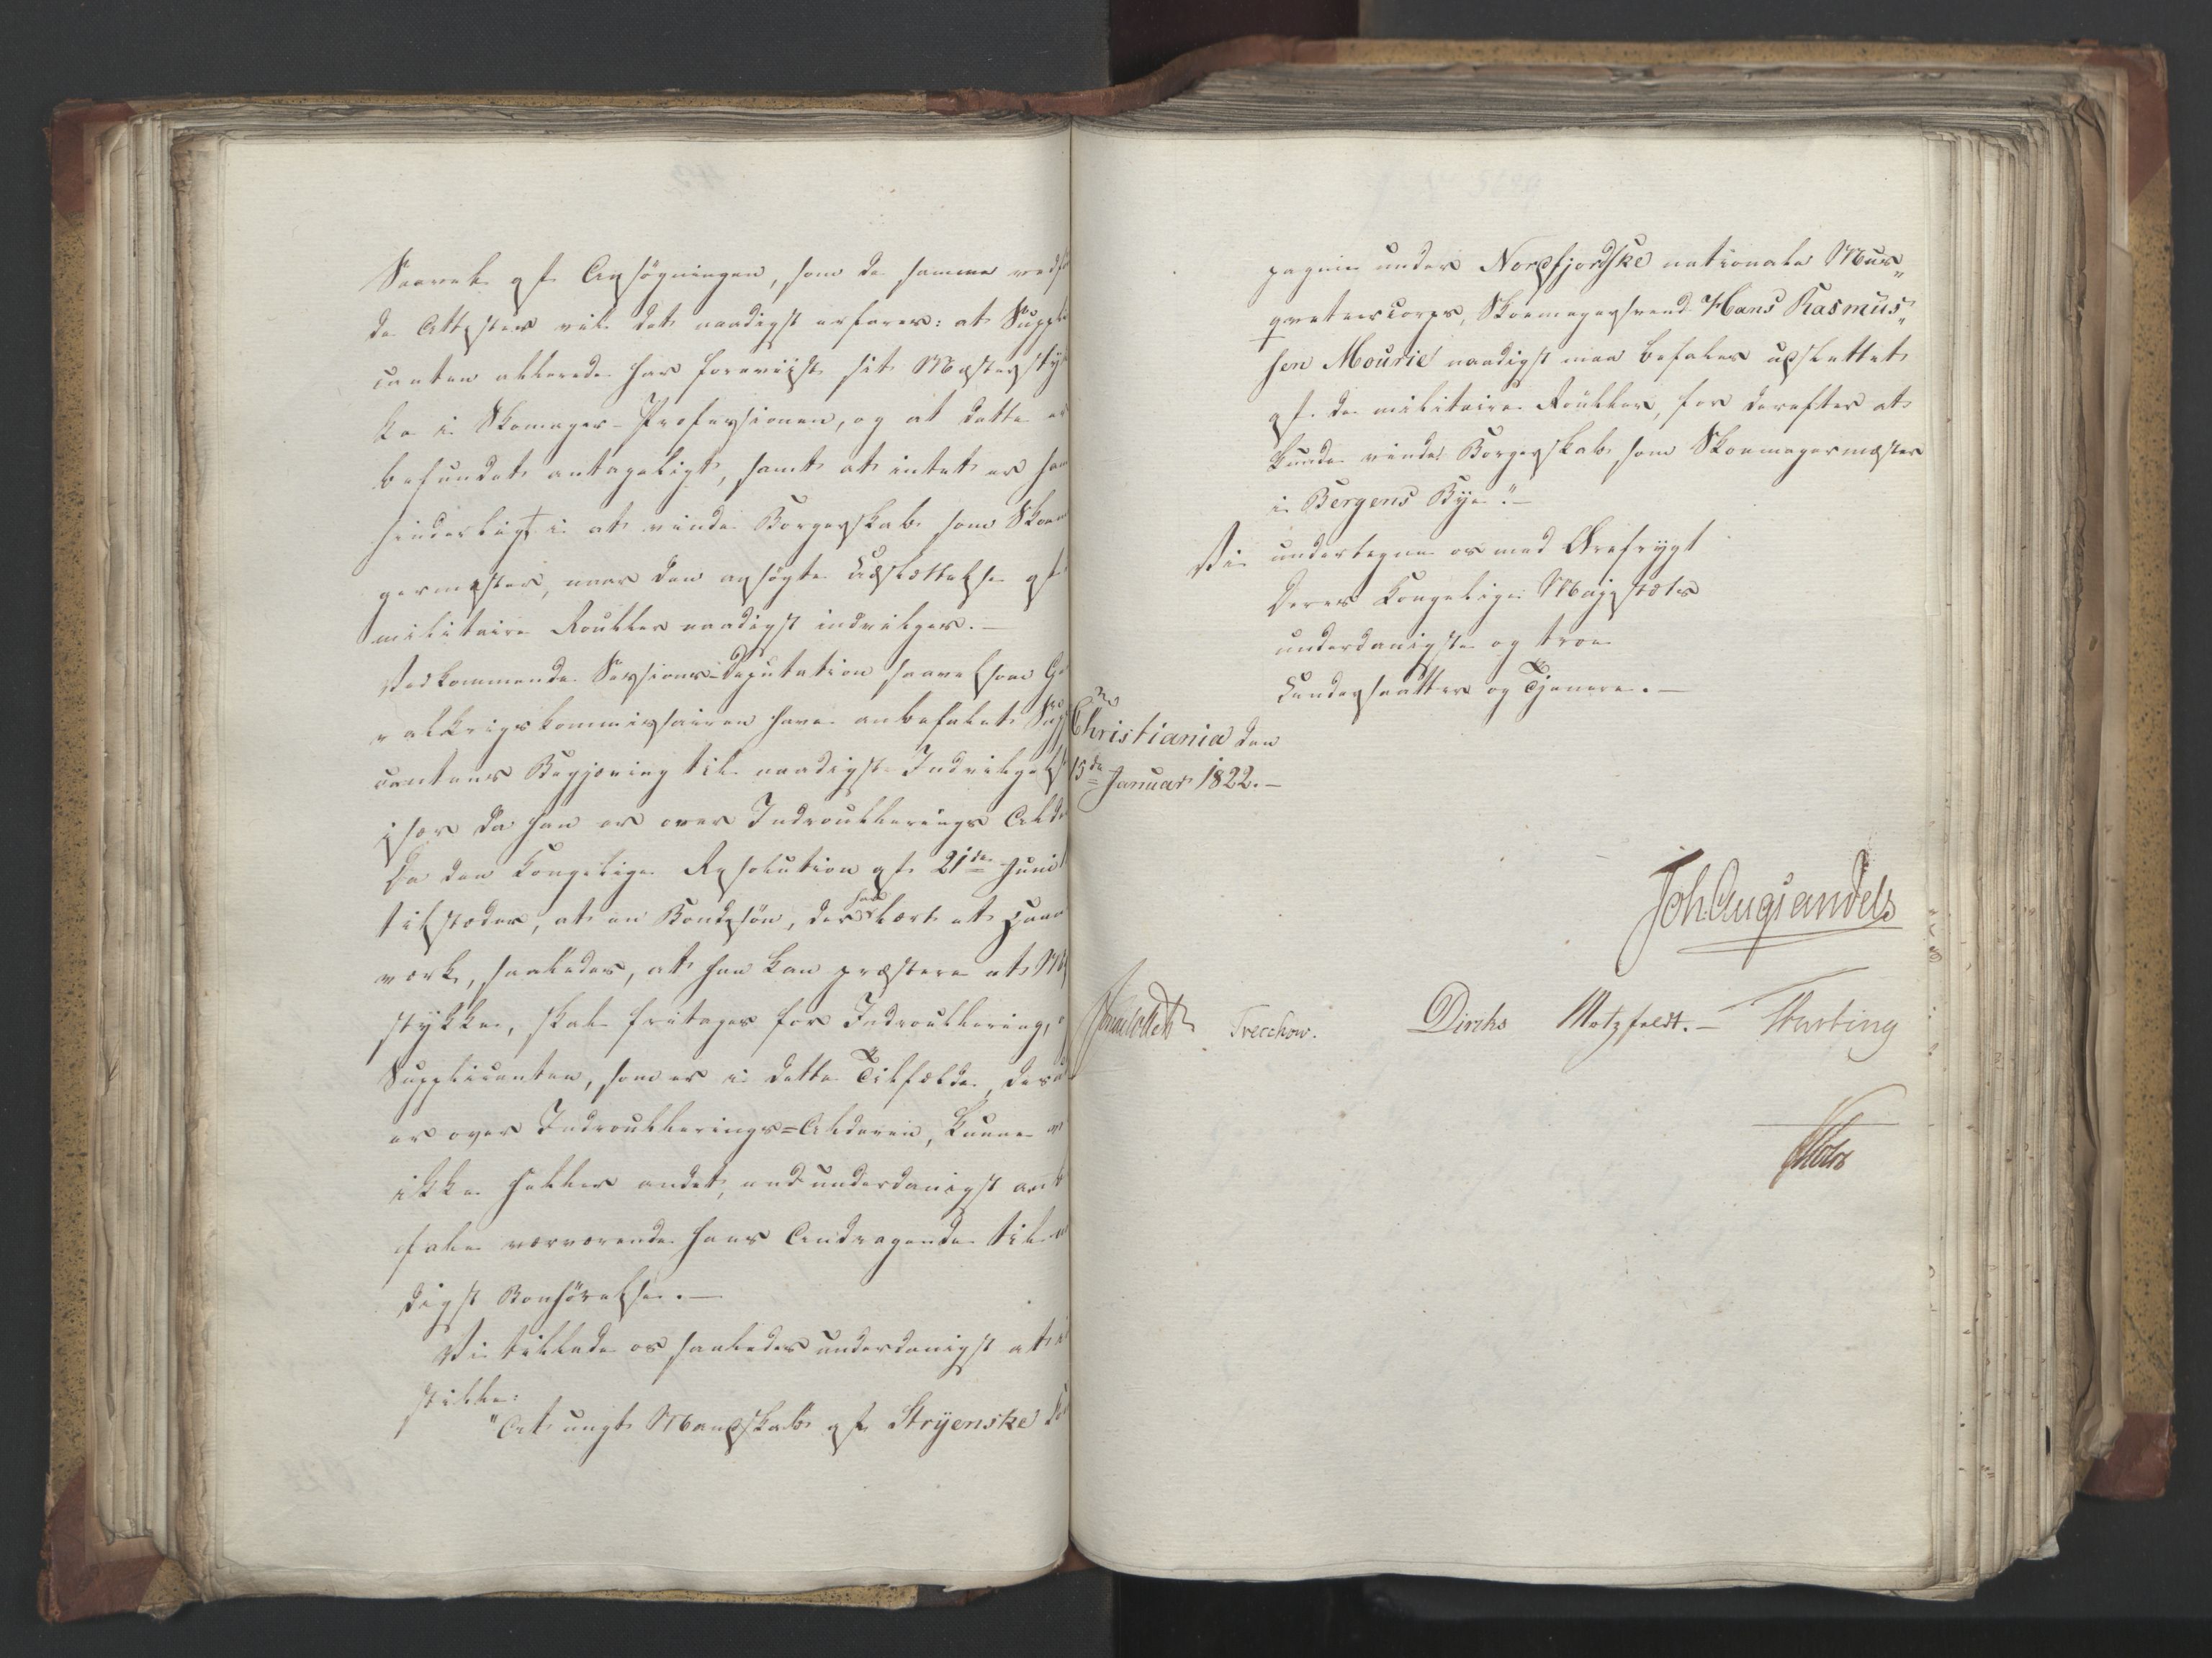 Saavel af Ansøgningen, som de samme vedfø
de Attester vil det naadigst erfares: at Suppli
canten allerede har foreviist sit Mesterstyk
ke i Skomager-Professionen, og at dette er
befundet antageligt, samt at intet er ham
hinderligt i at vinde Borgerskab som Skoma
germester, naar den ansøgte Udslettelse af
militaire Rouller naadigst indvilges. —
Vedkommende Sessions-Deputation saavelsom Ge
ralkrigskommissairen have anbefalet Suppl
cantens Begjæring til naadigst Indvilgelse
især da han er over Indroullerings Alde
Da den Kongelige Resolution af 21de Juni
tilsteder, at en Bondesøn, der har lært et Haand
værk, saaledes, at han kan præstere et Me
stykke, skal fritages for Indroullering,
Supplicanten, som er i dette Tilfælde, des
er over Indroullerings=Alderen, kunne vi
ikke heller andet, end underdanigst anb
fale nærværende hans Andragende til
digst Bønhørelse. —
Vi tillade os saaledes underdanigst at i
stille:
"At ungt Mandskab af Stryenske Co
pagnie under Nordfjordske nationale Mus„
qveteercorps, Skomagersvend Hans Rasmus„
sen Mourie naadigst maa befales udslettet
af de militaire Rouller, for derefter at
kunde vinde Borgerskab som Skomagermester
i Bergens Bye." —
Vi undertegne os med Ærefrygt
Deres Kongelige Majestæts
underdanigste og troe
Undersaatter og Tjenere. —
Christiania den
15de Januar 1822. —
Joh. Aug. Sandels
Treschow. Diriks Motzfeldt. —